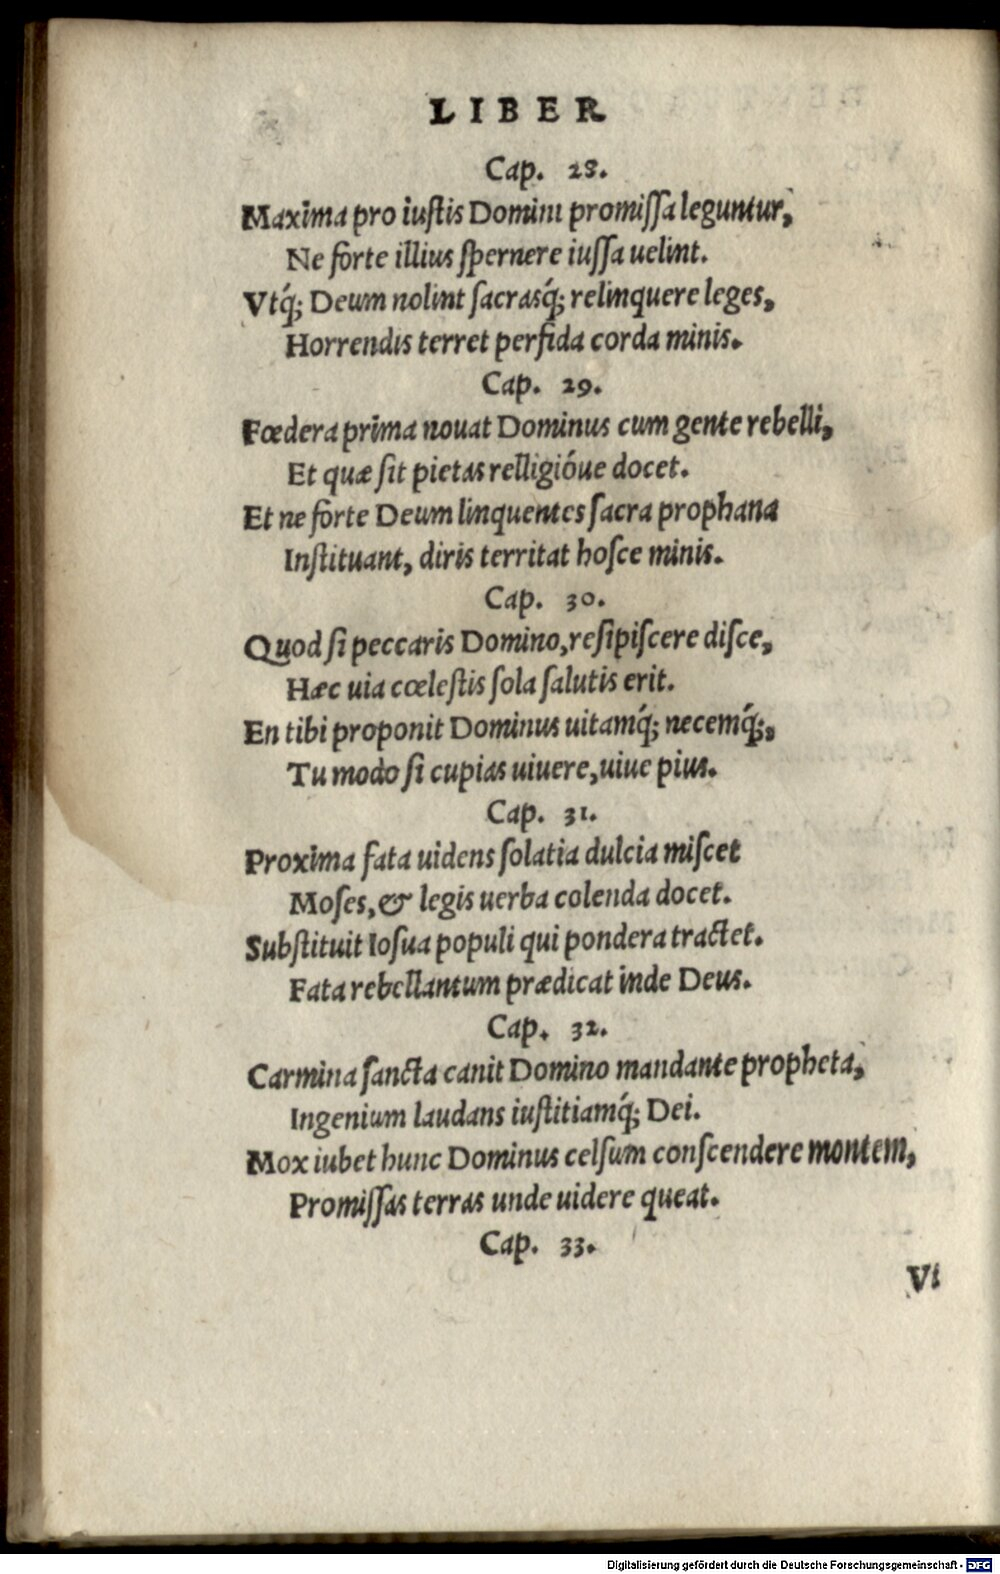 LIBER
Cap. 28.
Maxima pro iustis Domini promissa leguntur,
Ne forte illius spernere iussa uelint.
Vtq́; Deum nolint sacrasq́; relinquere leges,
Horrendis terret perfida corda minis.
Cap. 29.
Fœdera prima nouat Dominus cum gente rebelli,
Et quæ sit pietas relligióue docet.
Et ne forte Deum linquentes sacra prophana
Instituant, diris territat hosce minis.
Cap. 30.
Quod si peccaris Domino, resipiscere disce,
Hæc uia cœlestis sola salutis erit.
En tibi proponit Dominus uitamq́; necemq́;,
Tu modo si cupias uiuere, uiue pius.
Cap. 31.
Proxima fata uidens solatia dulcia miscet
Moses, & legis uerba colenda docet.
Substituit Iosua populi qui pondera tractet.
Fata rebellantum prædicat inde Deus.
Cap. 32.
Carmina sancta canit Domino mandante propheta,
Ingenium laudans iustitiamq́; Dei.
Mox iubet hunc Dominus celsum conscendere montem,
Promissas terras unde uidere queat.
Cap. 33.
Vt
Digitalisierung gefördert durch die Deutsche Forschungsgemeinschaft - DFG